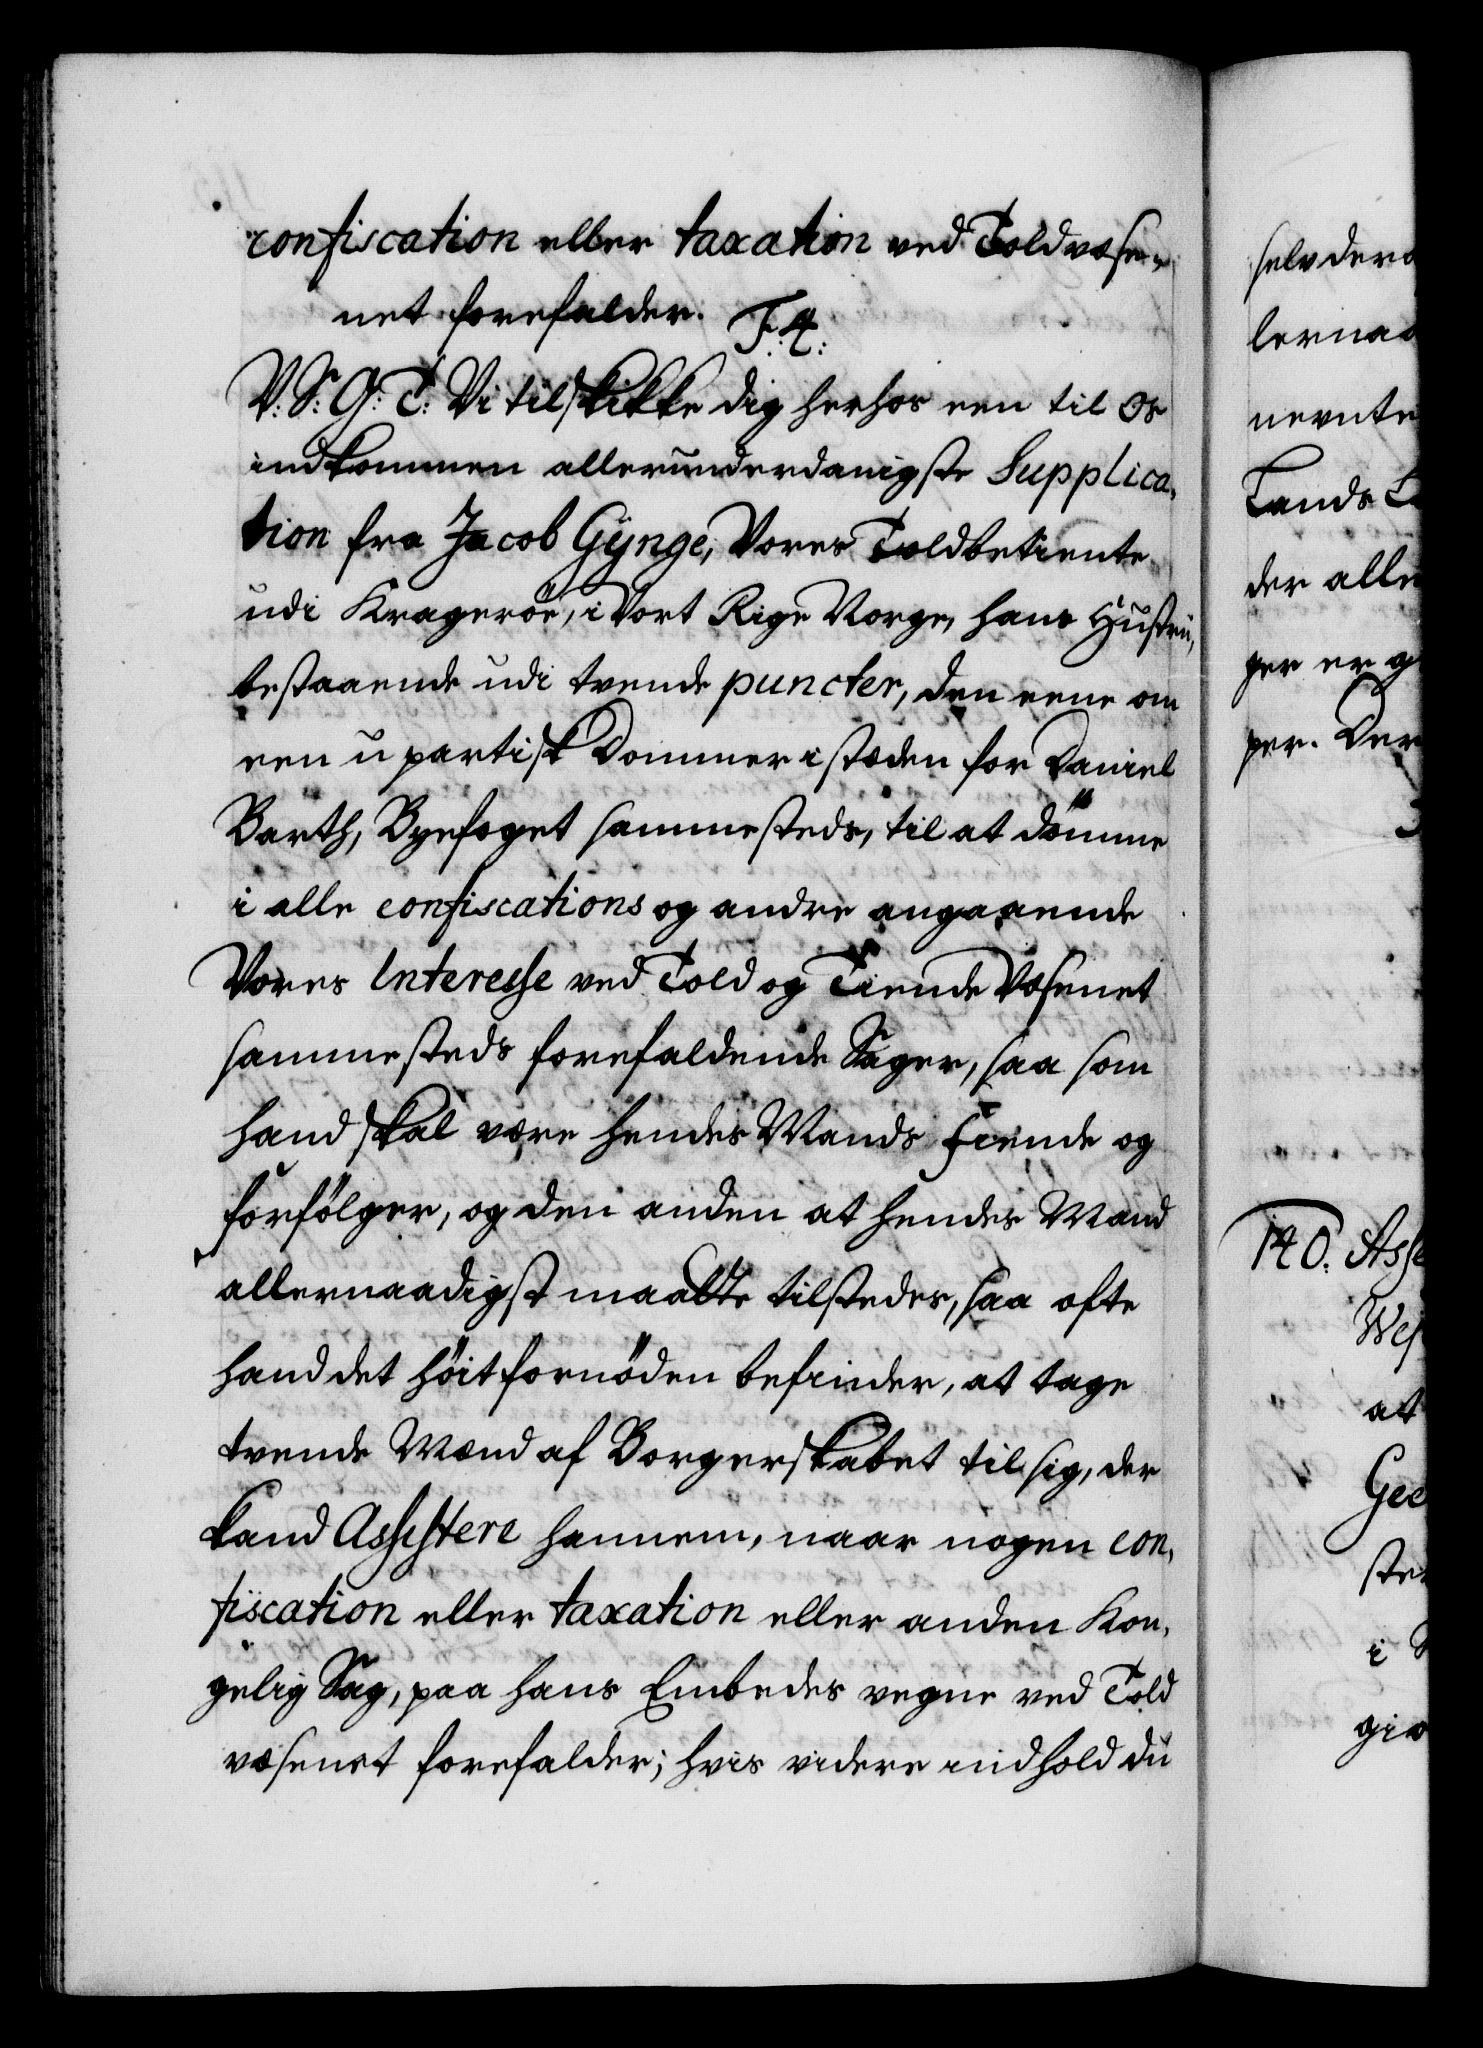 confiscation eller taxation ved Toldvæse-
net forefalder. F. 4.
V: S: G: T: Vi tilskikke dig herhos een til Os
indkommen allerunderdanigste Supplica-
tion fra Jacob Gÿnge, Vores Toldbetiente
udi Krageröe, i Vort Rige Norge, hans Hustru,
bestaaende udi tvende puncter, den eene om
een u partisk Dommer i stæden for Daniel
Barth, Byefoget sammesteds, til at dömme
i alle confiscations og andre angaaende
Vores Interesse ved Told og Tiende Væsenet
sammesteds forefaldende Sager, saa som
hand skal være hendes Mands Fiende og
forfölger, og den anden at hendes Mand
allernaadigst maatte tilstedes, saa ofte
hand det höit fornöden befinder, at tage
tvende Mænd af Borgerskabet til sig, der
kand Assistere hannem, naar nogen con-
fiscation eller taxation eller anden Kon-
gelig Sag, paa hans Embedes vegne ved Told
væsenet forefalder; hvis videre indhold du
selv der
lerna
nevnte
Lands
der alle
ger er g
per. Der
140. Asse
Wej
at
Gee
ste
i S
giv